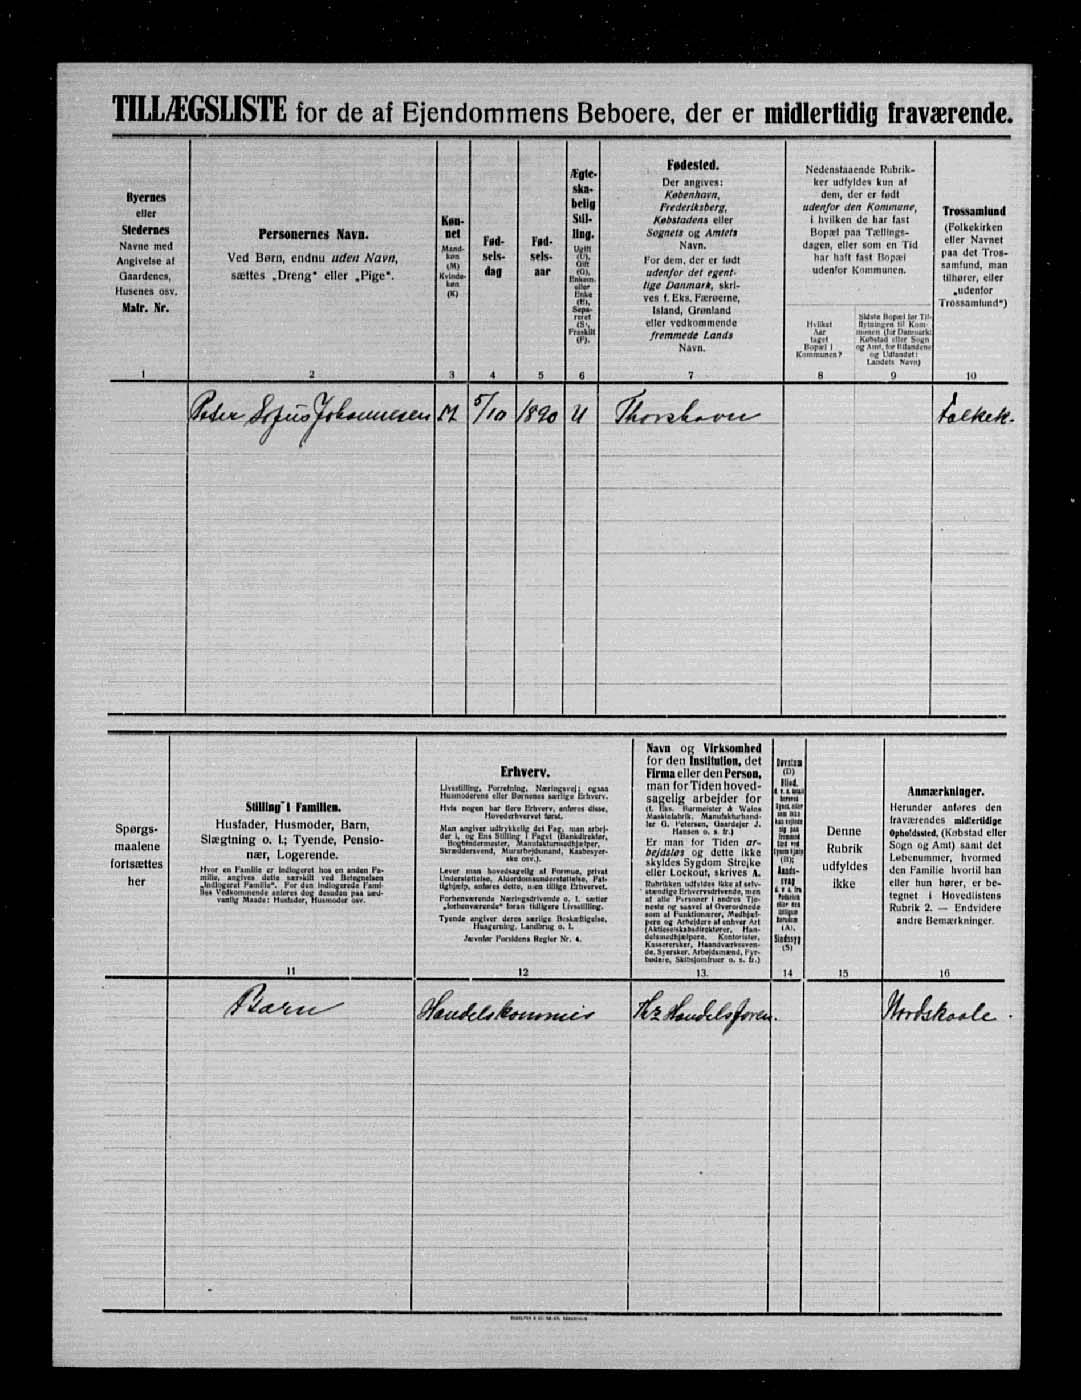 TILLÆGSLISTE for de af Ejendommens Beboere, der er midlertidig fraværende.
Byernes
eller
Stedernes
Navne med
Angivelse af
Gaardenes,
Husenes osv.
Matr. Nr.
1
Personernes Navn.
Ved Børn, endnu uden Navn,
sættes „Dreng“ eller „Pige“.
2
Køn-
net
Mand-
køn
(M)
Kvinde-
køn
(K)
3
Fød-
sels-
dag
4
Fød-
sels-
aar
5
Ægte-
ska-
belig
Stil-
ling.
Ugift
(U),
Gift
(G),
Enkem.
eller
Enke
(E),
Sepa-
reret
(S),
Fraskilt
(F).
6
Fødested.
Der angives:
København,
Frederiksberg,
Købstadens eller
Sognets og Amtets
Navn.
For dem, der er født
udenfor det egent-
lige Danmark, skri-
ves f. Eks. Færøerne,
Island, Grønland
eller vedkommende
fremmede Lands
Navn.
7
Nedenstaaende Rubrik-
ker udfyldes kun af
dem, der er født
udenfor den Kommune,
i hvilken de har fast
Bopæl paa Tællings-
dagen, eller som en Tid
har haft fast Bopæl
udenfor Kommunen.
Hvilket
Aar
taget
Bopæl i
Kommunen?
8
Sidste Bopæl før Til-
flytningen til Kom-
munen (for Danmark:
Købstad eller Sogn
og Amt, for Bilandene
og Udlandet:
Landets Navn)
9
Trossamfund
(Folkekirken
eller Navnet
paa det Tros-
samfund, man
tilhører, eller
„udenfor
Trossamfund“)
10
Peter Sofus Johannesen M 5/10 1890 U Thorshavn Folkek.
Spørgs-
maalene
fortsættes
her
Stilling i Familien.
Husfader, Husmoder, Barn,
Slægtning o. l.; Tyende, Pensio-
nær, Logerende.
Hvor en Familie er indlogeret hos en anden Fa-
milie, angives dette særskilt ved Betegnelsen
„Indlogeret Familie“. For den indlogerede Fami-
lies Vedkommende anføres dog desuden paa sæd-
vanlig Maade: Husfader, Husmoder osv.
11
Erhverv.
Livsstilling, Forretning, Næringsvej; ogsaa
Husmoderens eller Børnenes særlige Erhverv.
Hvis nogen har flere Erhverv, anføres disse,
Hovederhvervet først.
Man angiver udtrykkelig det Fag, man arbej-
der i, og Ens Stilling i Faget (Bankdirektør,
Bogbindermester, Manufakturmedhjælper,
Skræddersvend, Murarbejdsmand, Kaabesyer-
ske osv.).
Lever man hovedsagelig af Formue, privat
Understøttelse, Alderdomsunderstøttelse, Fat-
tighjælp, anføres dette, men tillige Erhvervet.
Forhenværende Næringsdrivende o. l. sætter
„forhenværende“ foran tidligere Livsstilling.
Tyende angiver deres særlige Beskæftigelse,
Husgerning, Landbrug o. l.
Jævnfør Forsidens Regler Nr. 4.
12
Navn og Virksomhed
for den Institution, det
Firma eller den Person,
man for Tiden hoved-
sagelig arbejder for
(f. Eks. Burmeister & Wains
Maskinfabrik, Manufakturhand-
ler G. Petersen, Gaardejer J.
Hansen o. s. fr.)
Er man for Tiden ar-
bejdsløs og dette ikke
skyldes Sygdom Strejke
eller Lockout, skrives A.
Rubrikken udfyldes ikke af selv-
stændige Erhvervsdrivende, men
af alle Personer i andres Tje-
neste og saavel af Overordnede
som af Funktionærer, Medhjæl-
pere og Arbejdere af enhver Art
(Aktieselskabsdirektører, Han-
delsmedhjælpere, Kontorister,
Kassererske, Haandværkssven-
de, Syersker, Arbejdsmænd, Fyr-
bødere, Skibsjomfruer o. s. fr.)
13.
Døvstum
(D)
Blind,
(B);
Aands-
svag
(A),
Sindssyg
(S)
14
Denne
Rubrik
udfyldes
ikke
15
Anmærkninger.
Herunder anføres den
fraværendes midlertidige
Opholdssted, (Købstad eller
Sogn og Amt) samt det
Løbenummer, hvormed
den Familie hvortil han
eller hun hører, er be-
tegnet i Hovedlistens
Rubrik 2. — Endvidere
andre Bemærkninger.
16
Barn Handelskommis Handelsforen. Nordskaale.